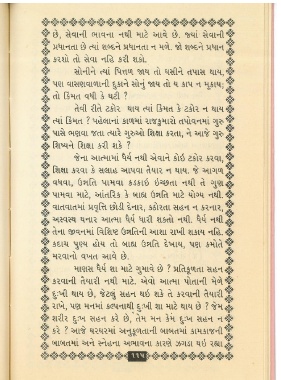 છે, સેવાની ભાવના નથી માટે આવે છે. જ્યાં સેવાની
પ્રધાનતા છે ત્યાં શબ્દને પ્રધાનતા ન મળે. જો શબ્દને પ્રધાન
કરશો તો સેવા નહિ કરી શકો.
સોનીને ત્યાં પિત્તળ જાય તો ઘસીને તપાસ થાય,
પણ વાસણવાળાની દુકાને સોનું જાય તો ય કાપ ન મુકાય;
તો કિંમત વધી કે ઘટી ?
તેવી રીતે ટકોર થાય ત્યાં કિંમત કે ટકોર ન થાય
ત્યાં કિંમત ? પહેલાંના કાળમાં રાજકુમારો તપોવનમાં ગુરુ
પાસે ભણવા જતા ત્યારે ગુરુઓ શિક્ષા કરતા, ને આજે ગુરુ
શિષ્યને શિક્ષા કરી શકે ?
જેના આત્મામાં ધૈર્ય નથી એવાને કોઈ ટકોર કરવા,
શિક્ષા કરવા કે સલાહ આપવા તૈયાર ન થાય. જે આગળ
વધવા, ઉન્નતિ પામવા કડકાઈ ઇચ્છતા નથી તે ગુણ
પામવા માટે, આંતરિક કે બાહ્ય ઉન્નતિ માટે યોગ્ય નથી.
વાતવાતમાં પ્રવૃત્તિ છોડી દેનાર, કઠોરતા સહન ન કરનાર,
અસ્વસ્થ થનાર આત્મા ધૈર્ય ધારી શકતો નથી. ધૈર્ય નથી
તેના જીવનમાં વિશિષ્ટ ઉન્નતિની આશા રાખી શકાય નહિ.
કદાચ પુણ્ય હોય તો બાહ્ય ઉન્નતિ દેખાય, પણ કમોતે
મરવાનો વખત આવે છે.
માણસ ધૈર્ય શા માટે ગુમાવે છે ? પ્રતિકૂળતા સહન
કરવાની તૈયારી નથી માટે. એવો આત્મા પોતાની મેળે
દુઃખી થાય છે, જેટલું સહન થઈ શકે તે કરવાની તૈયારી
રાખે, પણ મનમાં કલ્પનાથી દુઃખી શા માટે થાય છે ? જેમ
શરીર દુઃખ સહન કરે છે, તેમ મન કેમ દુઃખ સહન ન
કરે ? આજે ઘરઘરમાં અનુકૂળતાની બાબતમાં કામકાજની
બાબતમાં અને સ્નેહના અભાવના કારણે ઝગડા થઈ રહ્યા